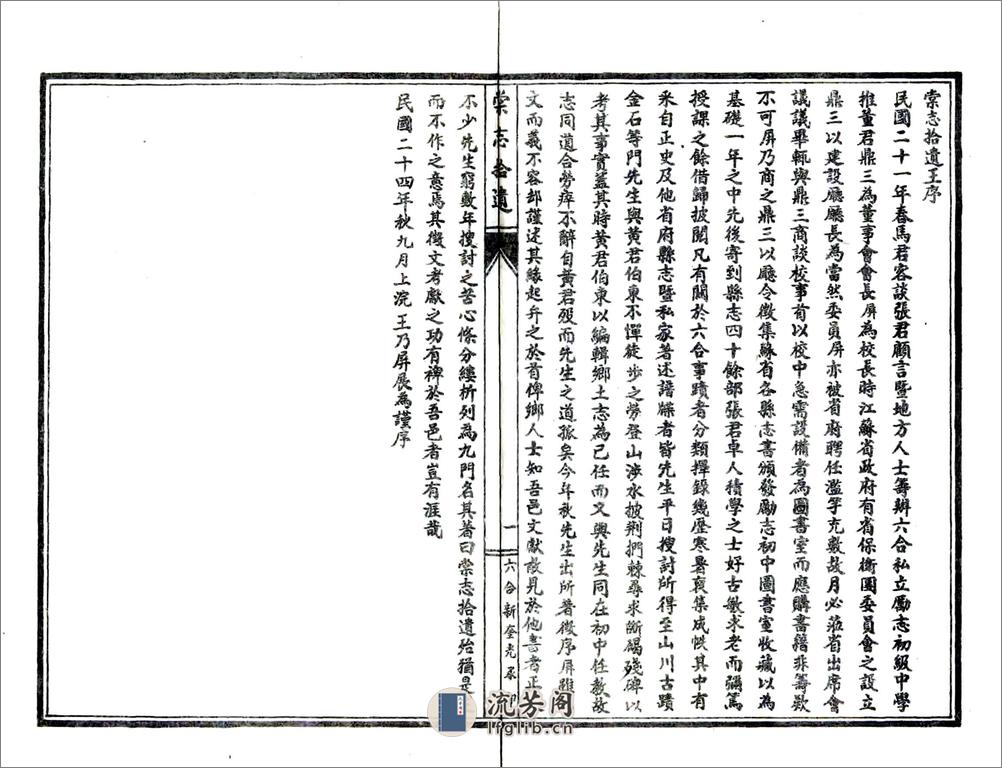 棠志拾遺王序
民國二十一年春馬君容談張君顧言暨地方人士籌辦六合私立勵志初級中學
推董君鼎三為董事會會長屏為校長時江蘇省政府有省保衛團委員會之設立
鼎三以建設廳廳長為當然委員屏亦被省府聘任濫竽充數故月必蒞省出席會
議議畢輒與鼎三商談校事首以校中急需設備者為圖書室而應購書籍非籌欵
不可屏乃商之鼎三以廳令徵集蘇省各縣志書頒發勵志初中圖書室收藏以為
基礎一年之中先後寄到縣志四十餘部張君卓人積學之士好古敏求老而彌篤
授課之餘借歸披閱凡有關於六合事蹟者分類擇錄幾歷寒暑裒集成帙其中有
采自正史及他省府縣志暨私家著述譜牒者皆先生平日搜討所得至山川古蹟
金石等門先生與黃君伯東不憚徒步之勞登山涉水披荆捫棘尋求斷碣殘碑以
考其事實蓋其時黃君伯東以編輯鄉土志為己任而又與先生同在初中任教故
志同道合勞瘁不辭自黃君歿而先生之道孤矣今年秋先生出所著徵序屏雖
文而義不容却謹述其緣起弁之於首俾鄉人士知吾邑文獻散見於他書者正
棠志拾遺
一
六合新奎光承印
不少先生窮數年搜討之苦心條分縷析列為九門名其著曰棠志拾遺殆猶是
而不作之意焉其徵文考獻之功有裨於吾邑者豈有涯哉
民國二十四年秋九月上浣王乃屏展為謹序
流芳阁
lfglib.cn